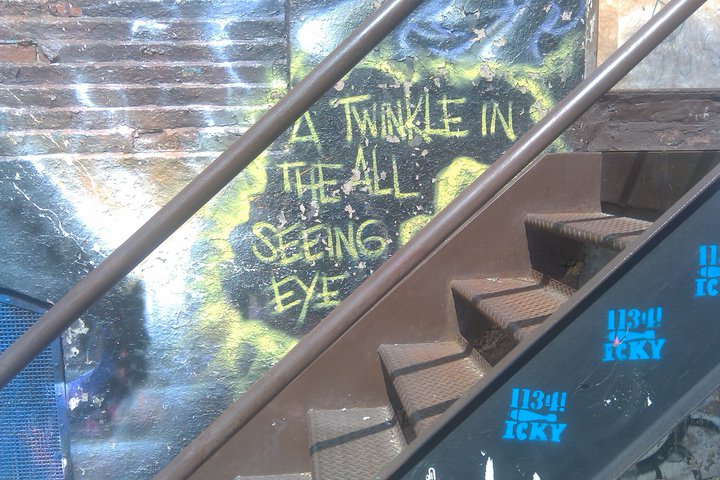 A TWINKLE IN
THE ALL
SEEING
EYE
113
IC
1134!
ICKY
1134!
ICKY